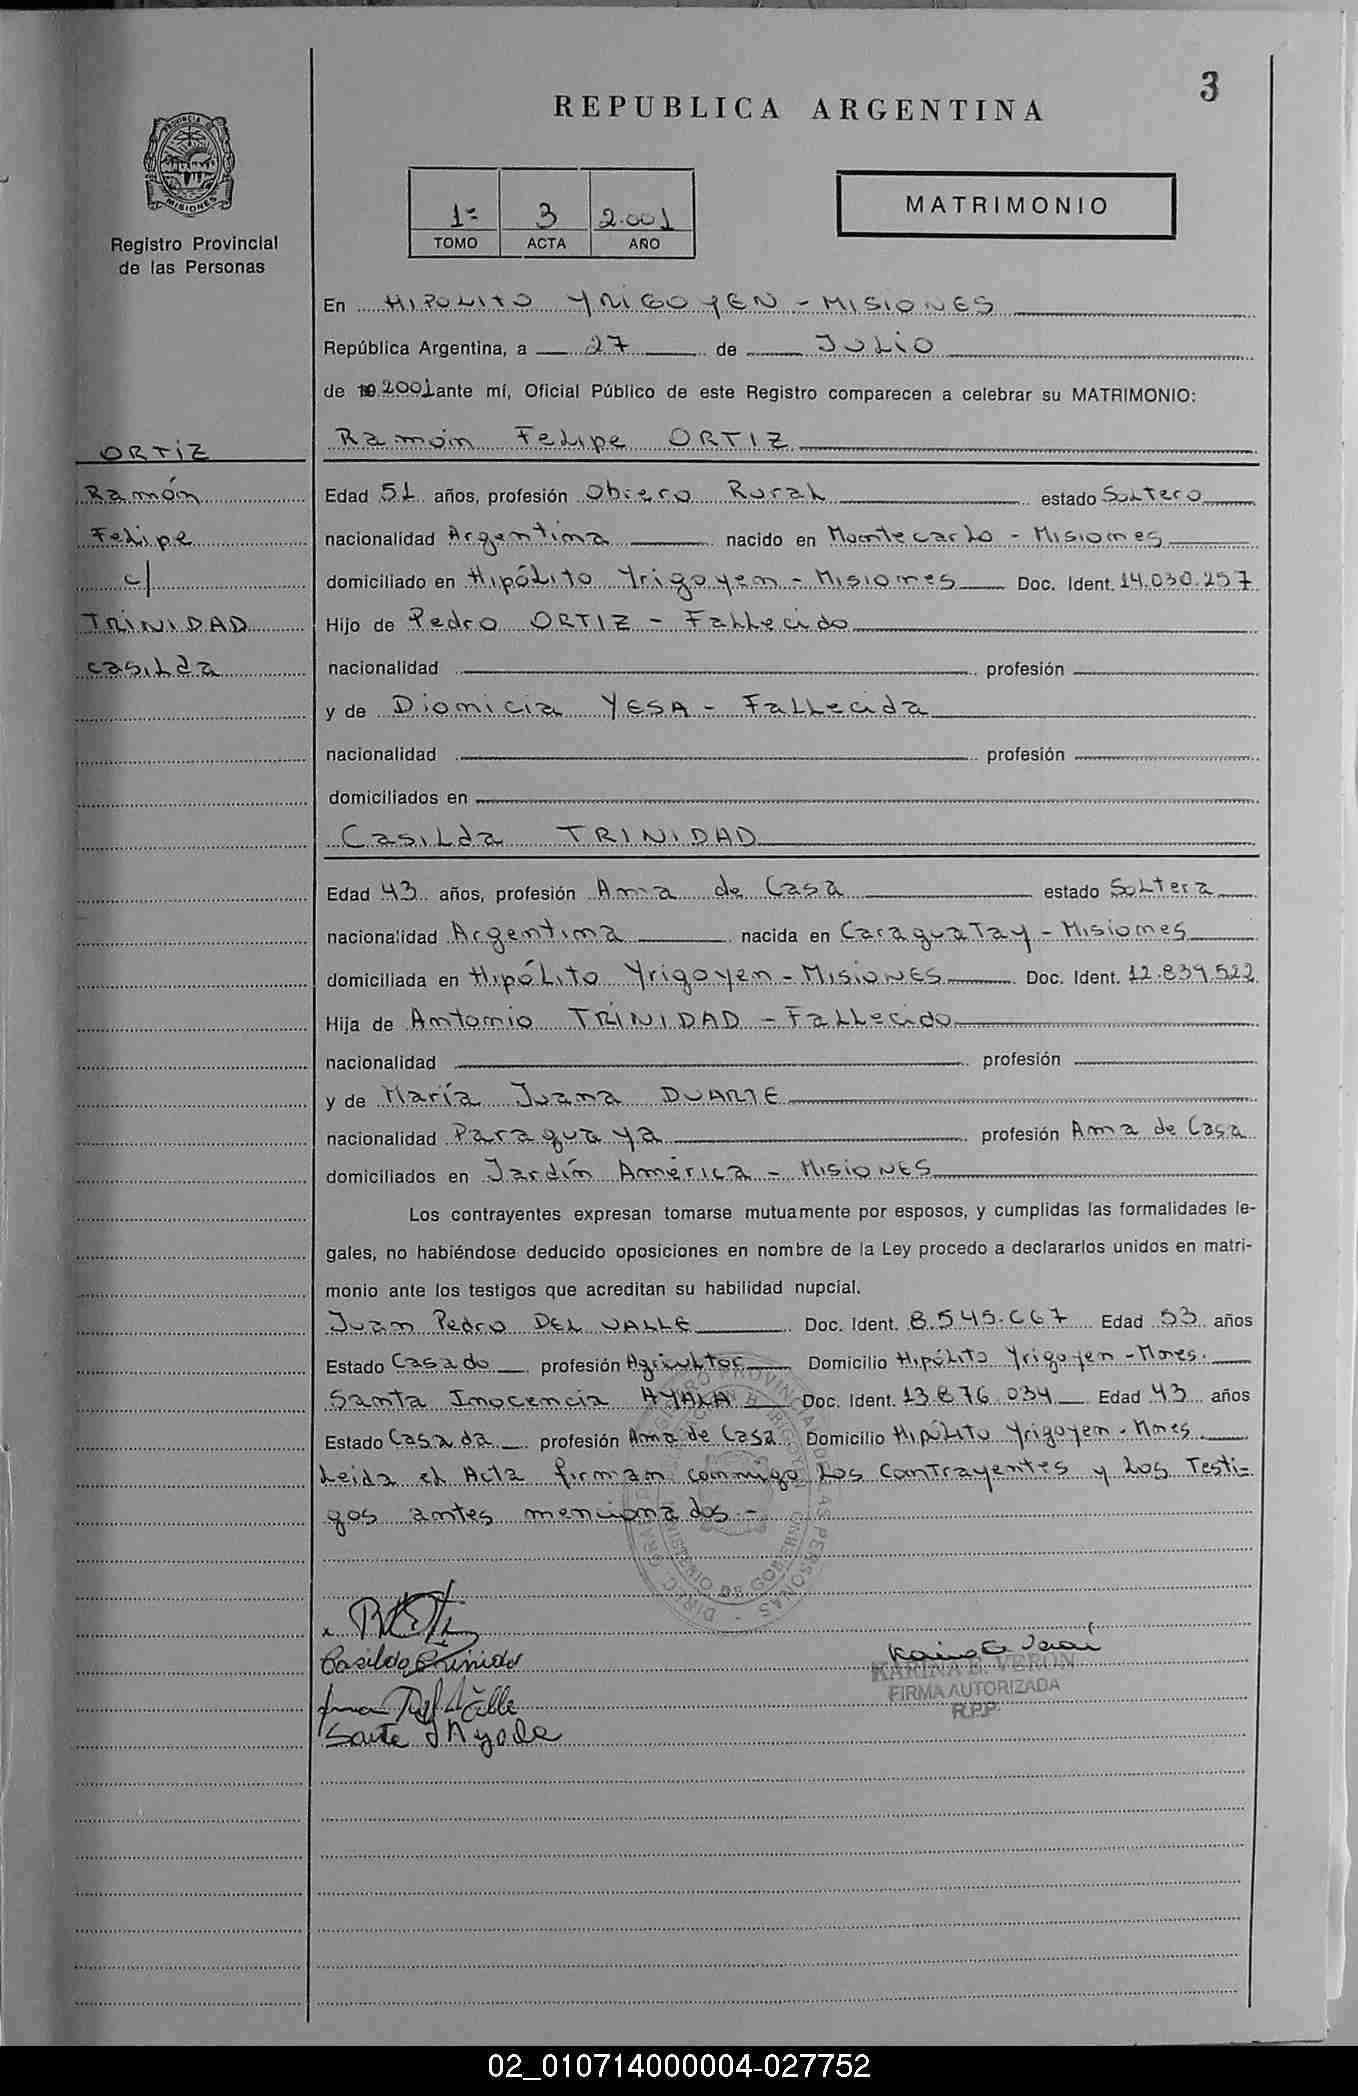 3
REPUBLICA ARGENTINA
PROVINCIA DE
MISIONES
Registro Provincial
de las Personas
1º 3 2.001
TOMO ACTA AÑO
MATRIMONIO
En HIPOLITO YRIGOYEN - MISIONES
República Argentina, a 27 de JULIO
de 2001 ante mí, Oficial Público de este Registro comparecen a celebrar su MATRIMONIO:
Ramón Felipe ORTIZ
ORTIZ
Ramón
Felipe
c/
TRINIDAD
Casilda
Edad 51 años, profesión Obrero Rural estado Soltero
nacionalidad Argentina nacido en Montecarlo - Misiones
domiciliado en Hipólito Yrigoyen - Misiones Doc. Ident. 14.030.257
Hijo de Pedro ORTIZ - Fallecido
nacionalidad profesión
y de Dionicia YESA - Fallecida
nacionalidad profesión
domiciliados en
Casilda TRINIDAD
Edad 43 años, profesión Ama de Casa estado Soltera
nacionalidad Argentina nacida en Caraguatay - Misiones
domiciliada en Hipólito Yrigoyen - MISIONES Doc. Ident. 12.839.522
Hija de Antonio TRINIDAD - Fallecido
nacionalidad profesión
y de María Juana DUARTE
nacionalidad Paraguaya profesión Ama de Casa
domiciliados en Jardín América - MISIONES
Los contrayentes expresan tomarse mutuamente por esposos, y cumplidas las formalidades le-
gales, no habiéndose deducido oposiciones en nombre de la Ley procedo a declararlos unidos en matri-
monio ante los testigos que acreditan su habilidad nupcial.
Juan Pedro DEL VALLE Doc. Ident. 8.545.667 Edad 53 años
Estado Casado profesión Agricultor Domicilio Hipólito Yrigoyen - Mnes.
Santa Inocencia AYALA Doc. Ident. 13.876.034 Edad 43 años
Estado Casada profesión Ama de Casa Domicilio Hipólito Yrigoyen - Mnes.
Leida el Acta firman conmigo los contrayentes y los Testi-
gos antes mencionados.-
Casilda Trinidad
Juan Del Valle
Santa I Ayala
KARINA E. VERON
FIRMA AUTORIZADA
R.P.P.
02_010714000004-027752